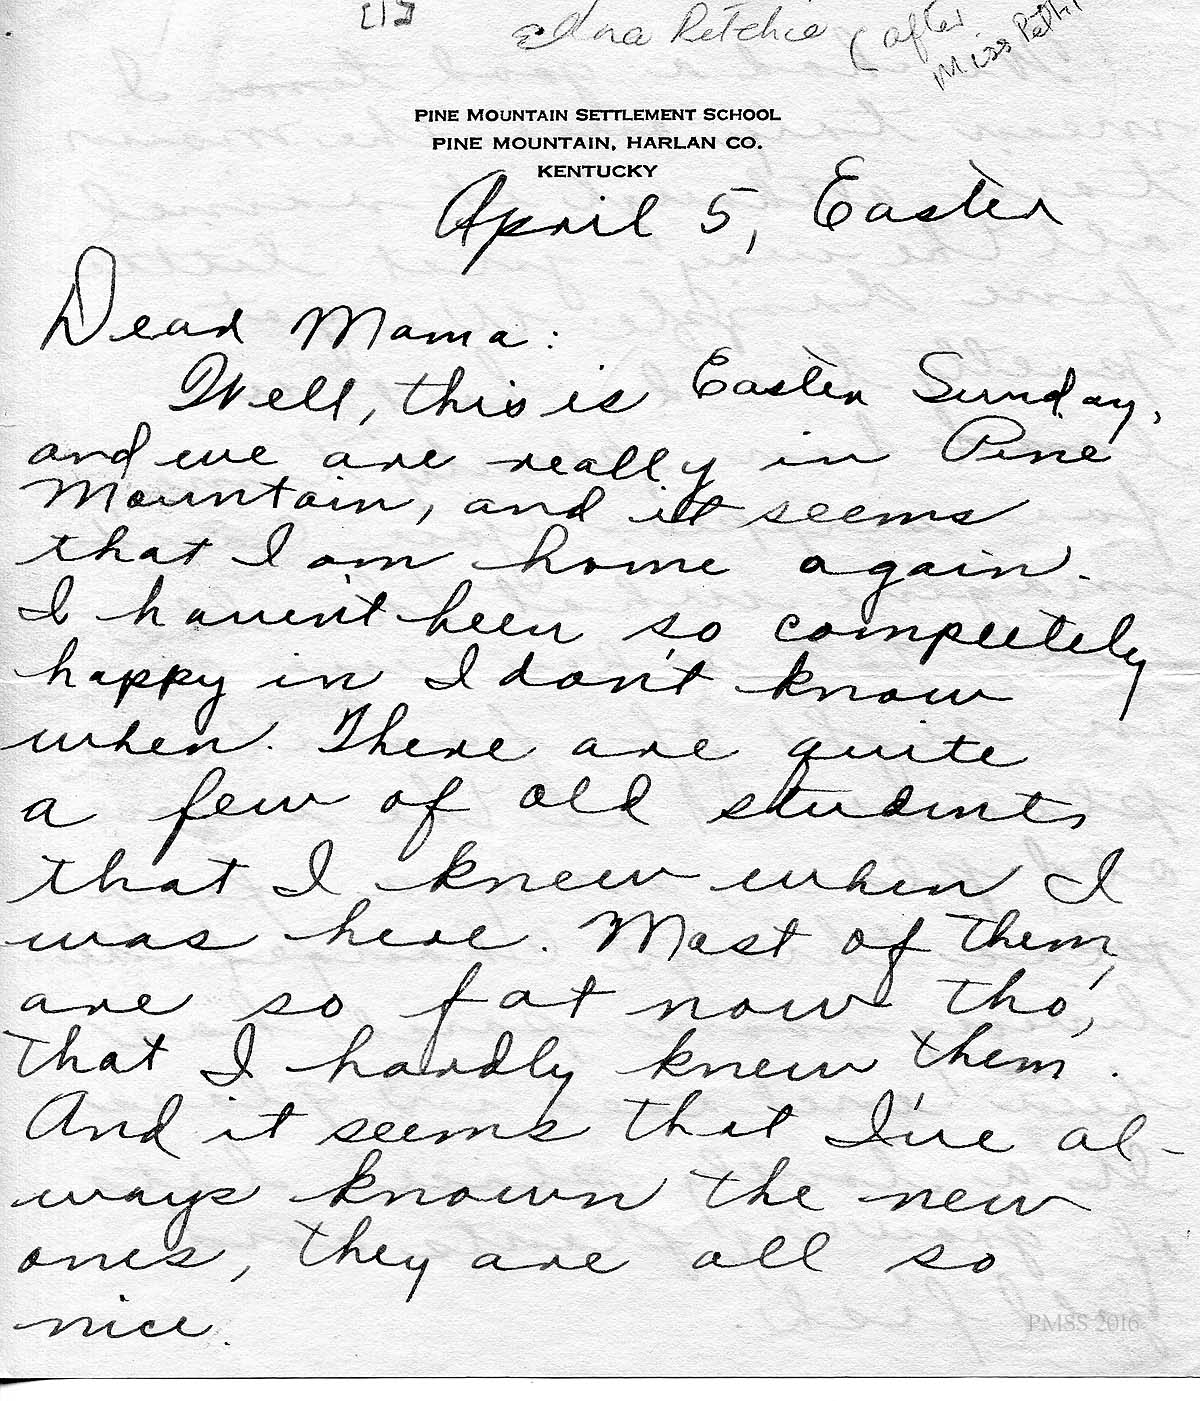 [1]
Edna Ritchie (after
Miss Pettit
PINE MOUNTAIN SETTLEMENT SCHOOL
PINE MOUNTAIN, HARLAN CO.
KENTUCKY
April 5, Easter
Dear Mama:
Well, this is Easter Sunday,
and we are really in Pine
Mountain, and it seems
that I am home again.
I haven't been so completely
happy in I don't know
when. There are quite
a few of old students
that I knew when I
was here. Most of them,
are so fat now tho',
that I hardly knew them.
And it seems that I've al-
ways known the new
ones, they are all so
nice.
PMSS 2016